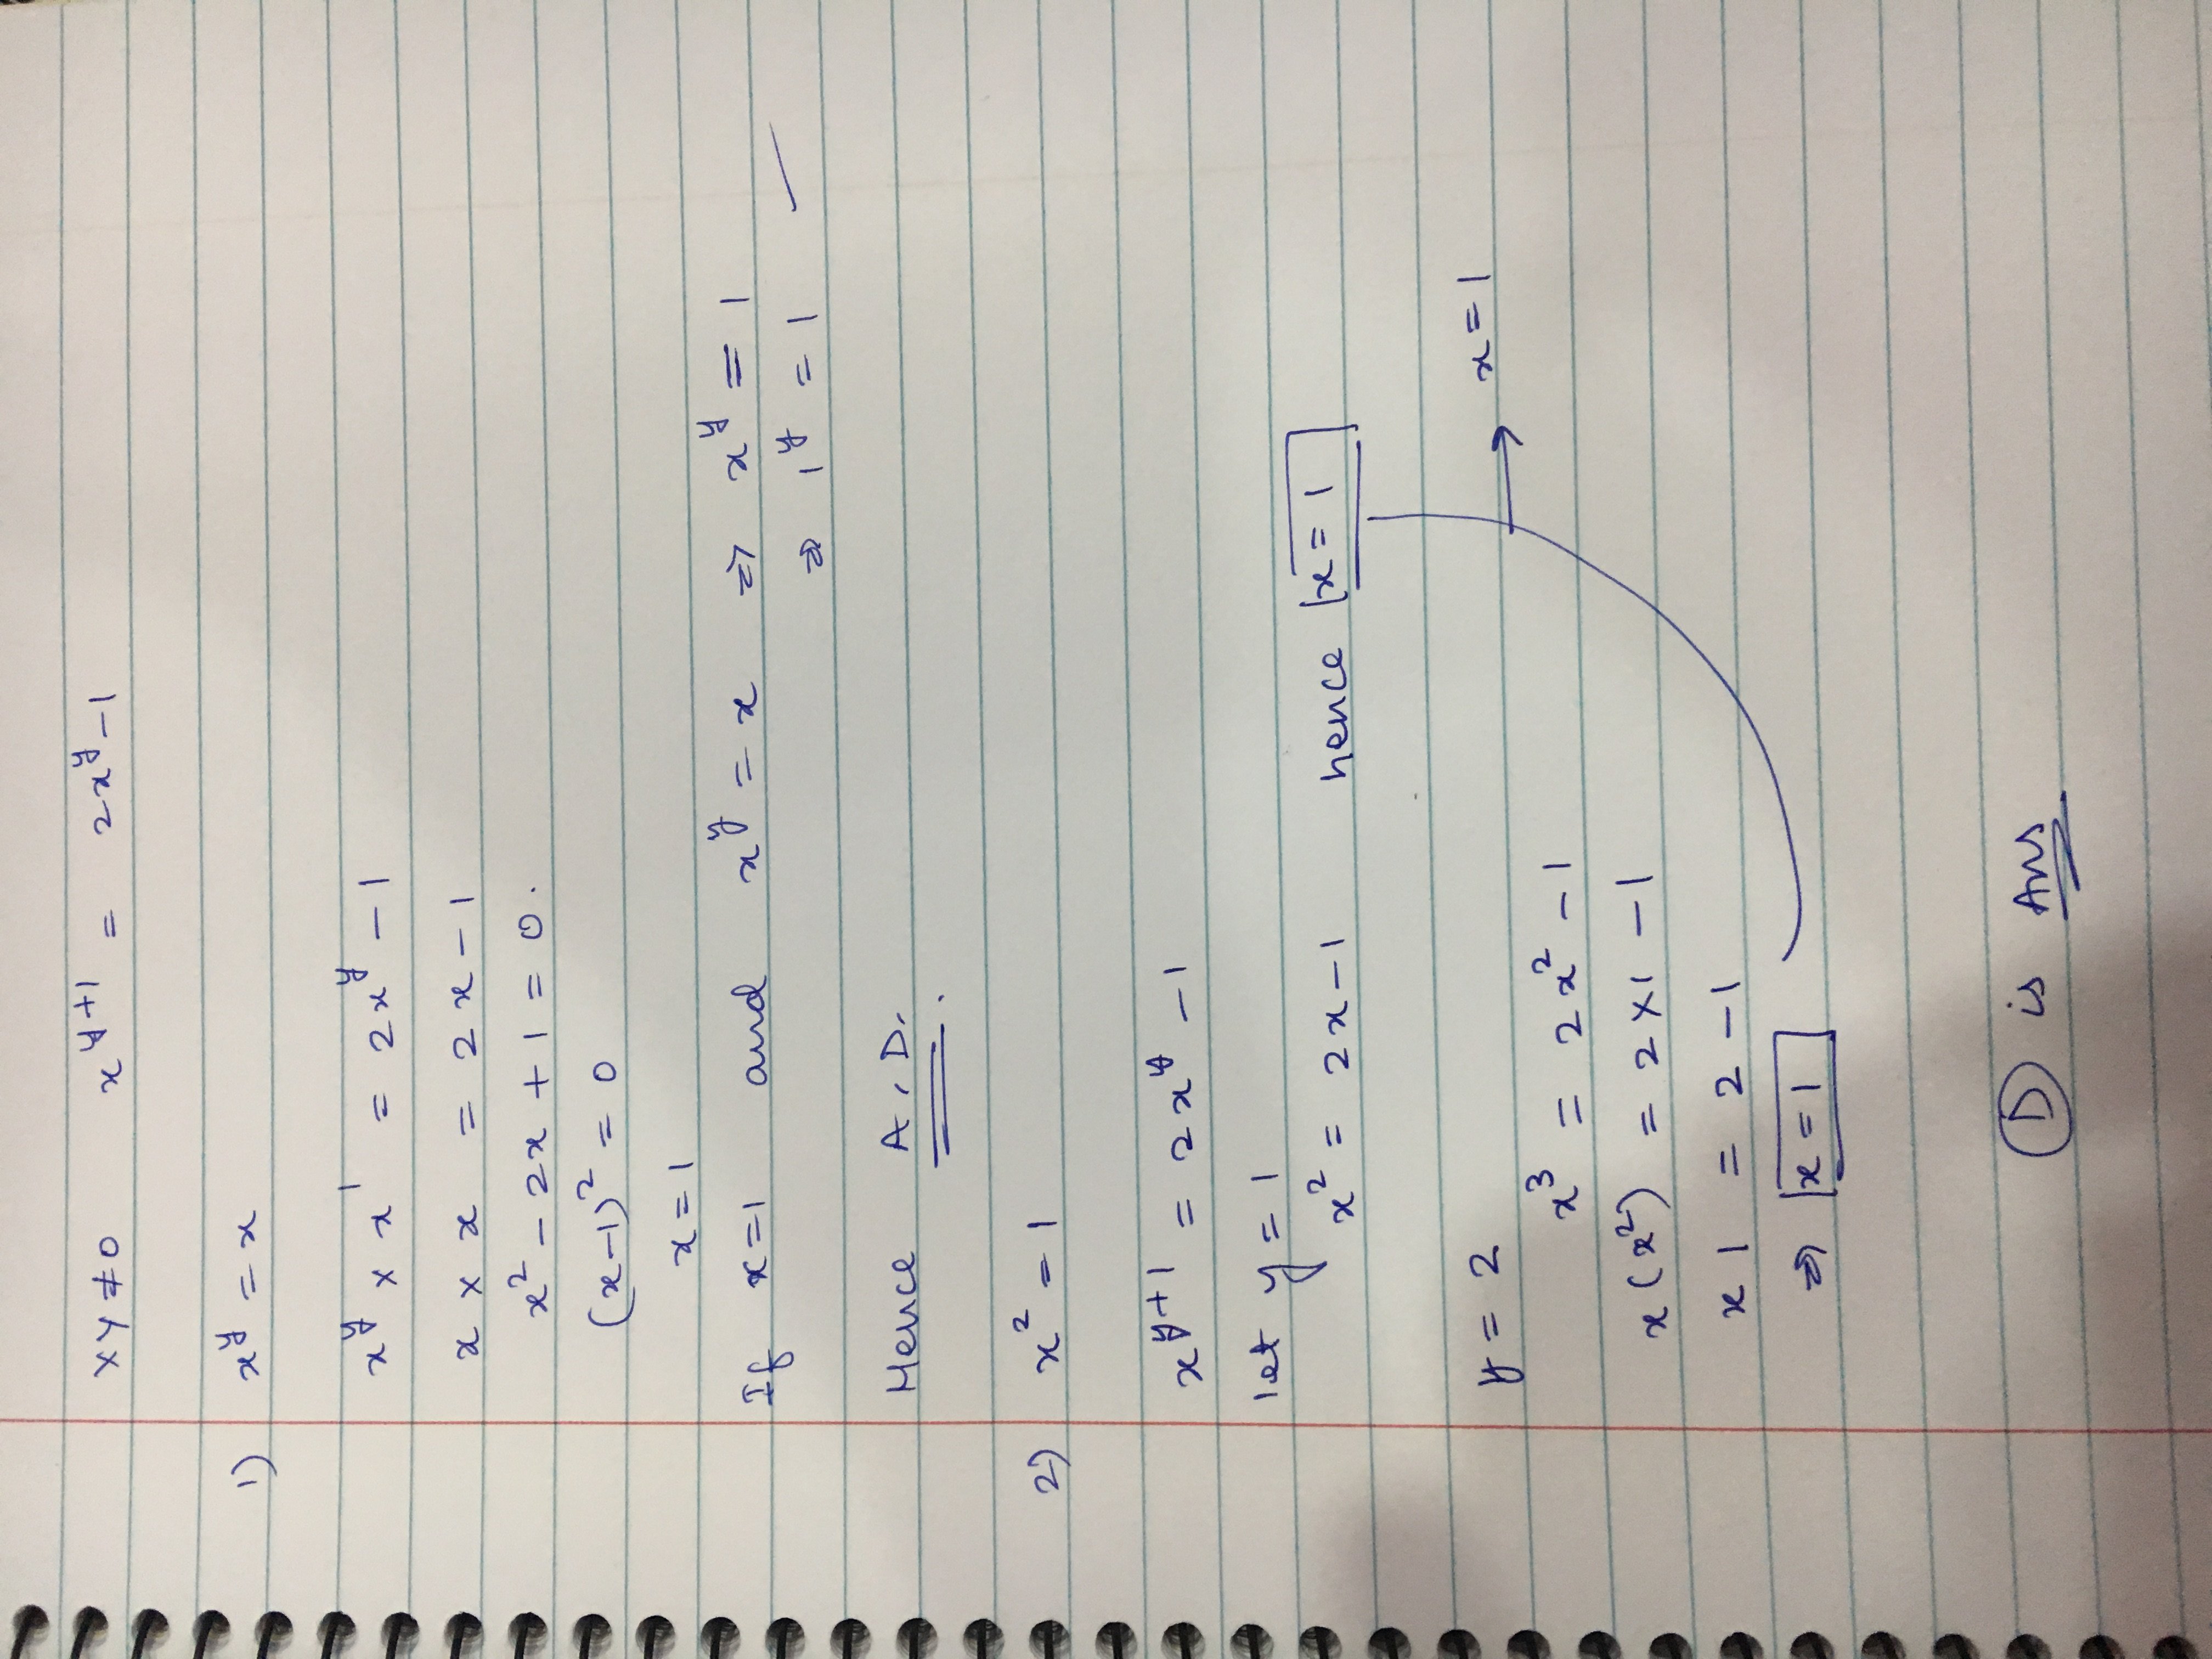 xy ≠ 0 x^{y+1} = 2x^y - 1
1) x^y = x
x^y × x^1 = 2x^y - 1
x × x = 2x - 1
x^2 - 2x + 1 = 0.
(x-1)^2 = 0
x = 1
If x=1 and x^y = x ⇒ x^y = 1
⇒ 1^y = 1 ✓
Hence A, D.
2) x^2 = 1
x^{y+1} = 2x^y - 1
let y = 1
x^2 = 2x - 1 hence x = 1
y = 2 → x = 1
x^3 = 2x^2 - 1
x(x^2) = 2×1 - 1
x 1 = 2 - 1
⇒ x = 1
D is Ans